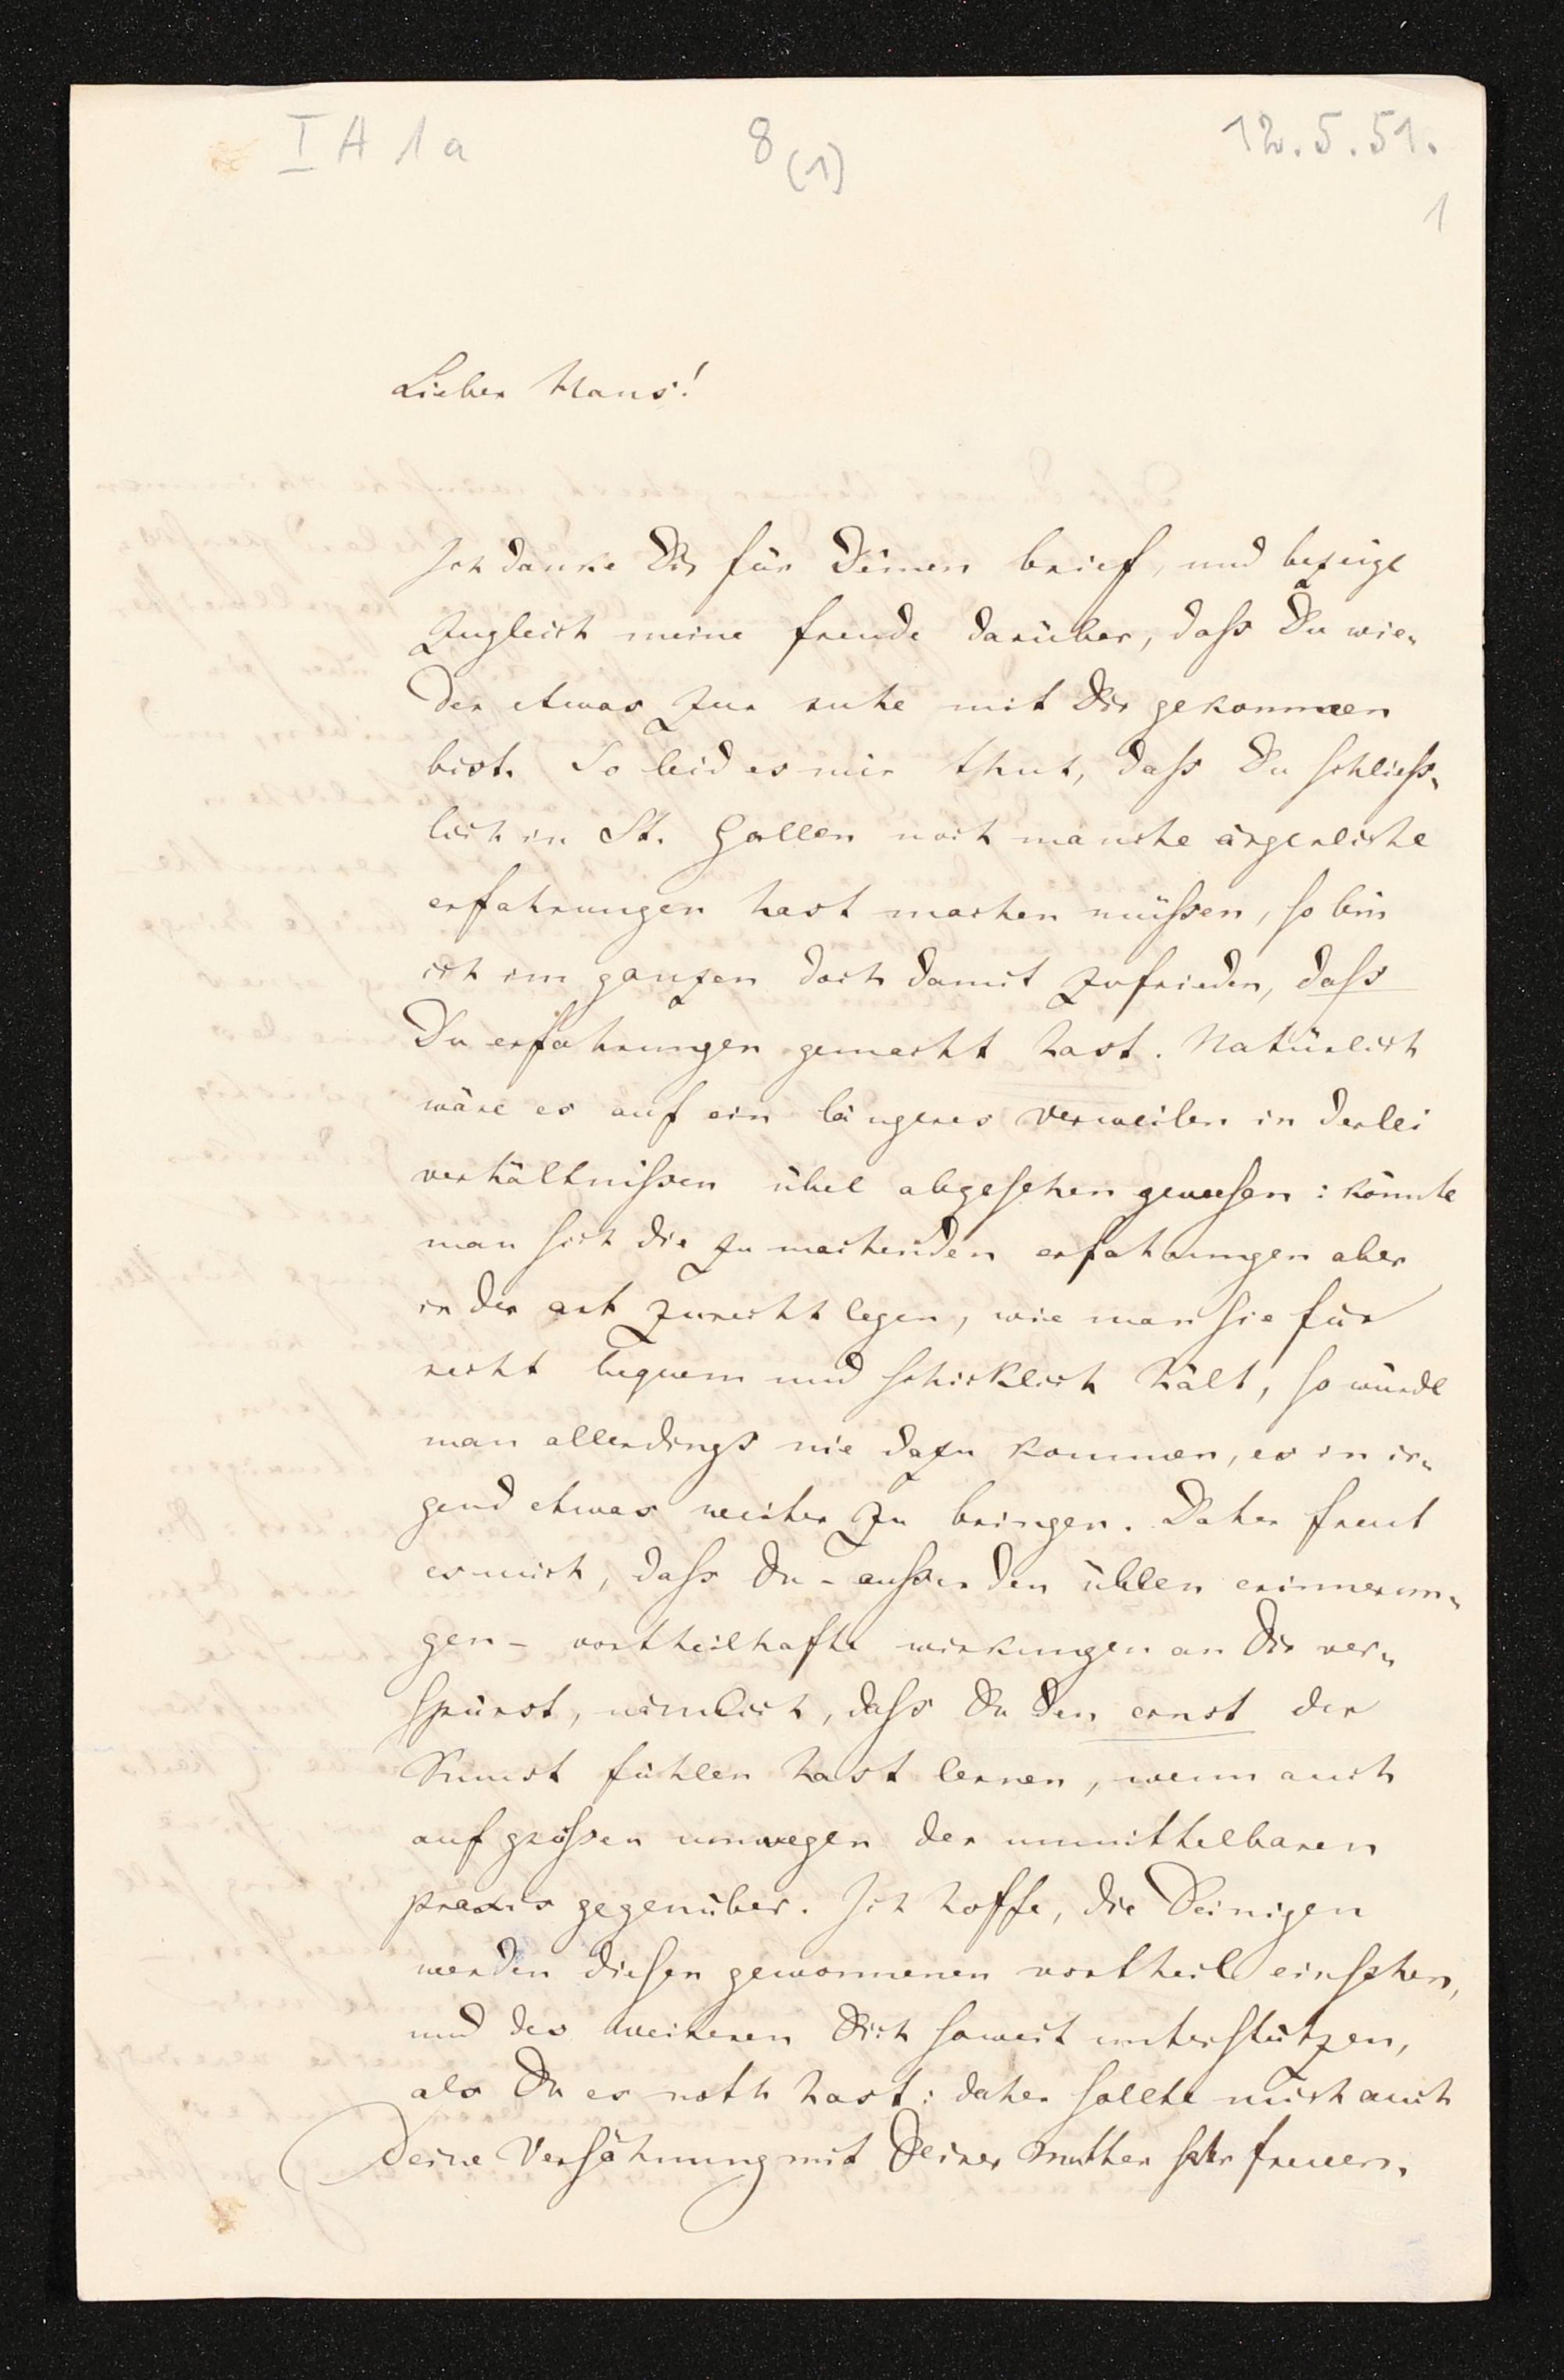 I A 1a
8
(1)
12.5.51.
1
Lieber Hans!
Ich danke Dir für Deinen brief, und bezeige
zugleich meine freude darüber, dass Du wie-
der etwas zur ruhe mit Dir gekommen
bist. So leid es mir thut, dass Du schliess-
lich in St. Gallen noch manche ärgerliche
erfahrungen hast machen müssen, so bin
ich im ganzen doch damit zufrieden, dass
Du erfahrungen gemacht hast. Natürlich
wäre es auf ein längeres verweilen in derlei
verhältnissen übel abgesehen gewesen: könnte
man sich die zu machenden erfahrungen aber
in der art zurecht legen, wie man sie für
recht bequem und schicklich hält, so würde
man allerdings nie dazu kommen, es in ir-
gend etwas weiter zu bringen. Daher freut
es mich, dass Du - ausser den üblen erinnerun-
gen - vortheilhafte wirkungen an Dir ver-
spürst, nämlich, dass Du den ernst der
Kunst fühlen hast lernen, wenn auch
auf grossen umwegen der unmittelbaren
praxis gegenüber. Ich hoffe, die Deinigen
werden diesen gewonnenen vortheil einsehen,
und des weiteren Dich soweit unterstützen,
als Du es noth hast: daher sollte mich auch
Deine Versöhnung mit Deiner mutter sehr freuen.